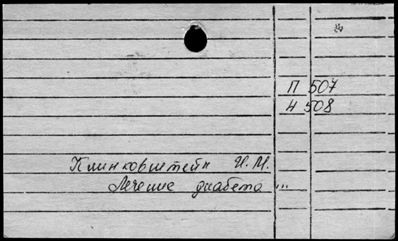 П 507
Н 508
Клинковштейн И. М.
Лечение диабета ...